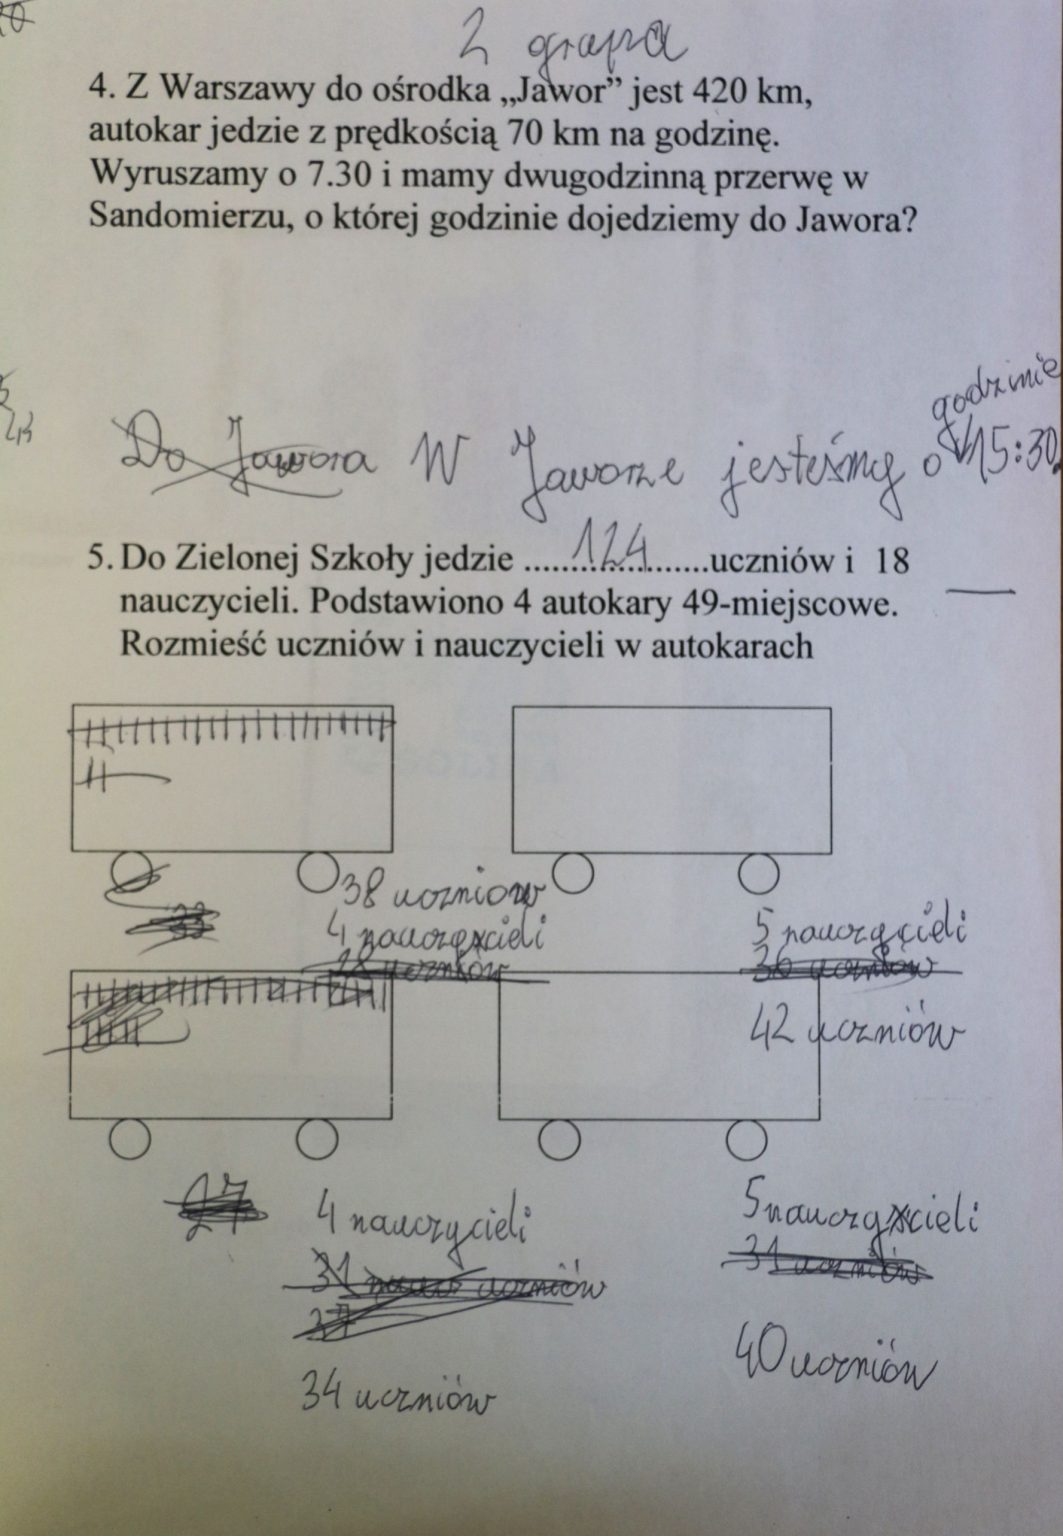 2 grupa
4. Z Warszawy do ośrodka „Jawor” jest 420 km,
autokar jedzie z prędkością 70 km na godzinę.
Wyruszamy o 7.30 i mamy dwugodzinną przerwę w
Sandomierzu, o której godzinie dojedziemy do Jawora?
godzinie
Do Jawora W Jaworze jesteśmy o 15:30.
5. Do Zielonej Szkoły jedzie ......124.......uczniów i 18
nauczycieli. Podstawiono 4 autokary 49-miejscowe.
Rozmieść uczniów i nauczycieli w autokarach
38 uczniów
4 nauczycieli
5 nauczycieli
42 uczniów
4 nauczycieli
5 nauczycieli
31 uczniów
34 uczniów
40 uczniów